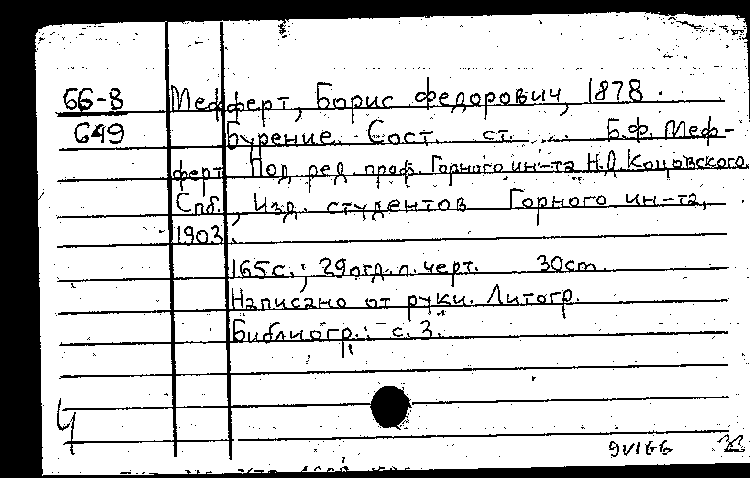 66-8 Мефферт, Борис Федорович, 1878.
649 Бурение. Сост. ст. ... Б.Ф. Меф-
ферт Под ред. проф. Горного ин-та Н.Д. Коцовского.
Спб., Изд. студентов Горного ин-та,
1903.
165с.; 29 отд.л. черт. 30cm.
Написано от руки. Литогр.
Библиогр.: с. 3.
Ч
9VI66